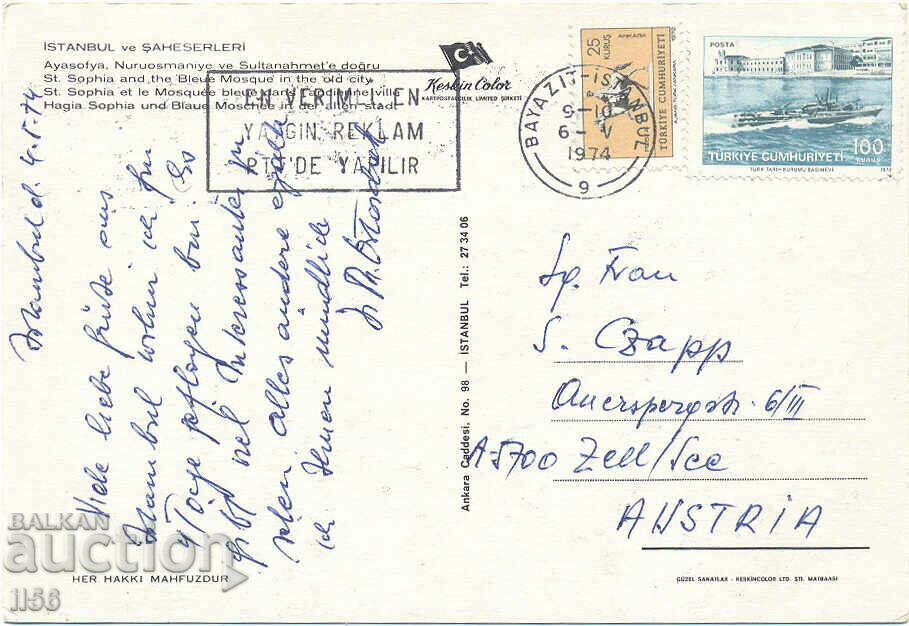 İSTANBUL ve ŞAHESERLERİ
Ayasofya, Nuruosmaniye ve Sultanahmet'e doğru
St. Sophia and the Bleue Mosque in the old city
St. Sophia et le Mosquée bleue dans l'ancienne ville
Hagia Sophia und Blaue Moschee in der alten stadt
Keskin Color
KARTPOSTALCILIK LIMITED ŞİRKETİ
EN VERİMLİ EN
YAYGIN REKLAM
PTT'DE YAPILIR
BAYAZIT-İSTANBUL
9-10
6-V
1974
9
25
KURUŞ
ANKARA
1972
TÜRKİYE CUMHURİYETİ
POSTA
TÜRKİYE CUMHURİYETİ
100
KURUŞ
TÜRK TARİH KURUMU BASIMEVİ
1973
Istanbul d. 4.5.74
Viele liebe Grüße aus
Istanbul wohin ich für
4 Tage geflogen bin. Es
gibt viel Interessantes zu
sehen alles andere erzähle
ich Ihnen mündlich
Ankara Caddesi, No. 98 — İSTANBUL Tel.: 27 34 06
Sg. Frau
S. Czapp
Auerspergstr. 6/III
A-5700 Zell/See
AUSTRIA
HER HAKKI MAHFUZDUR
GÜZEL SANATLAR - KESKİNCOLOR LTD. ŞTİ. MATBAASI
BALKAN
auction
1156